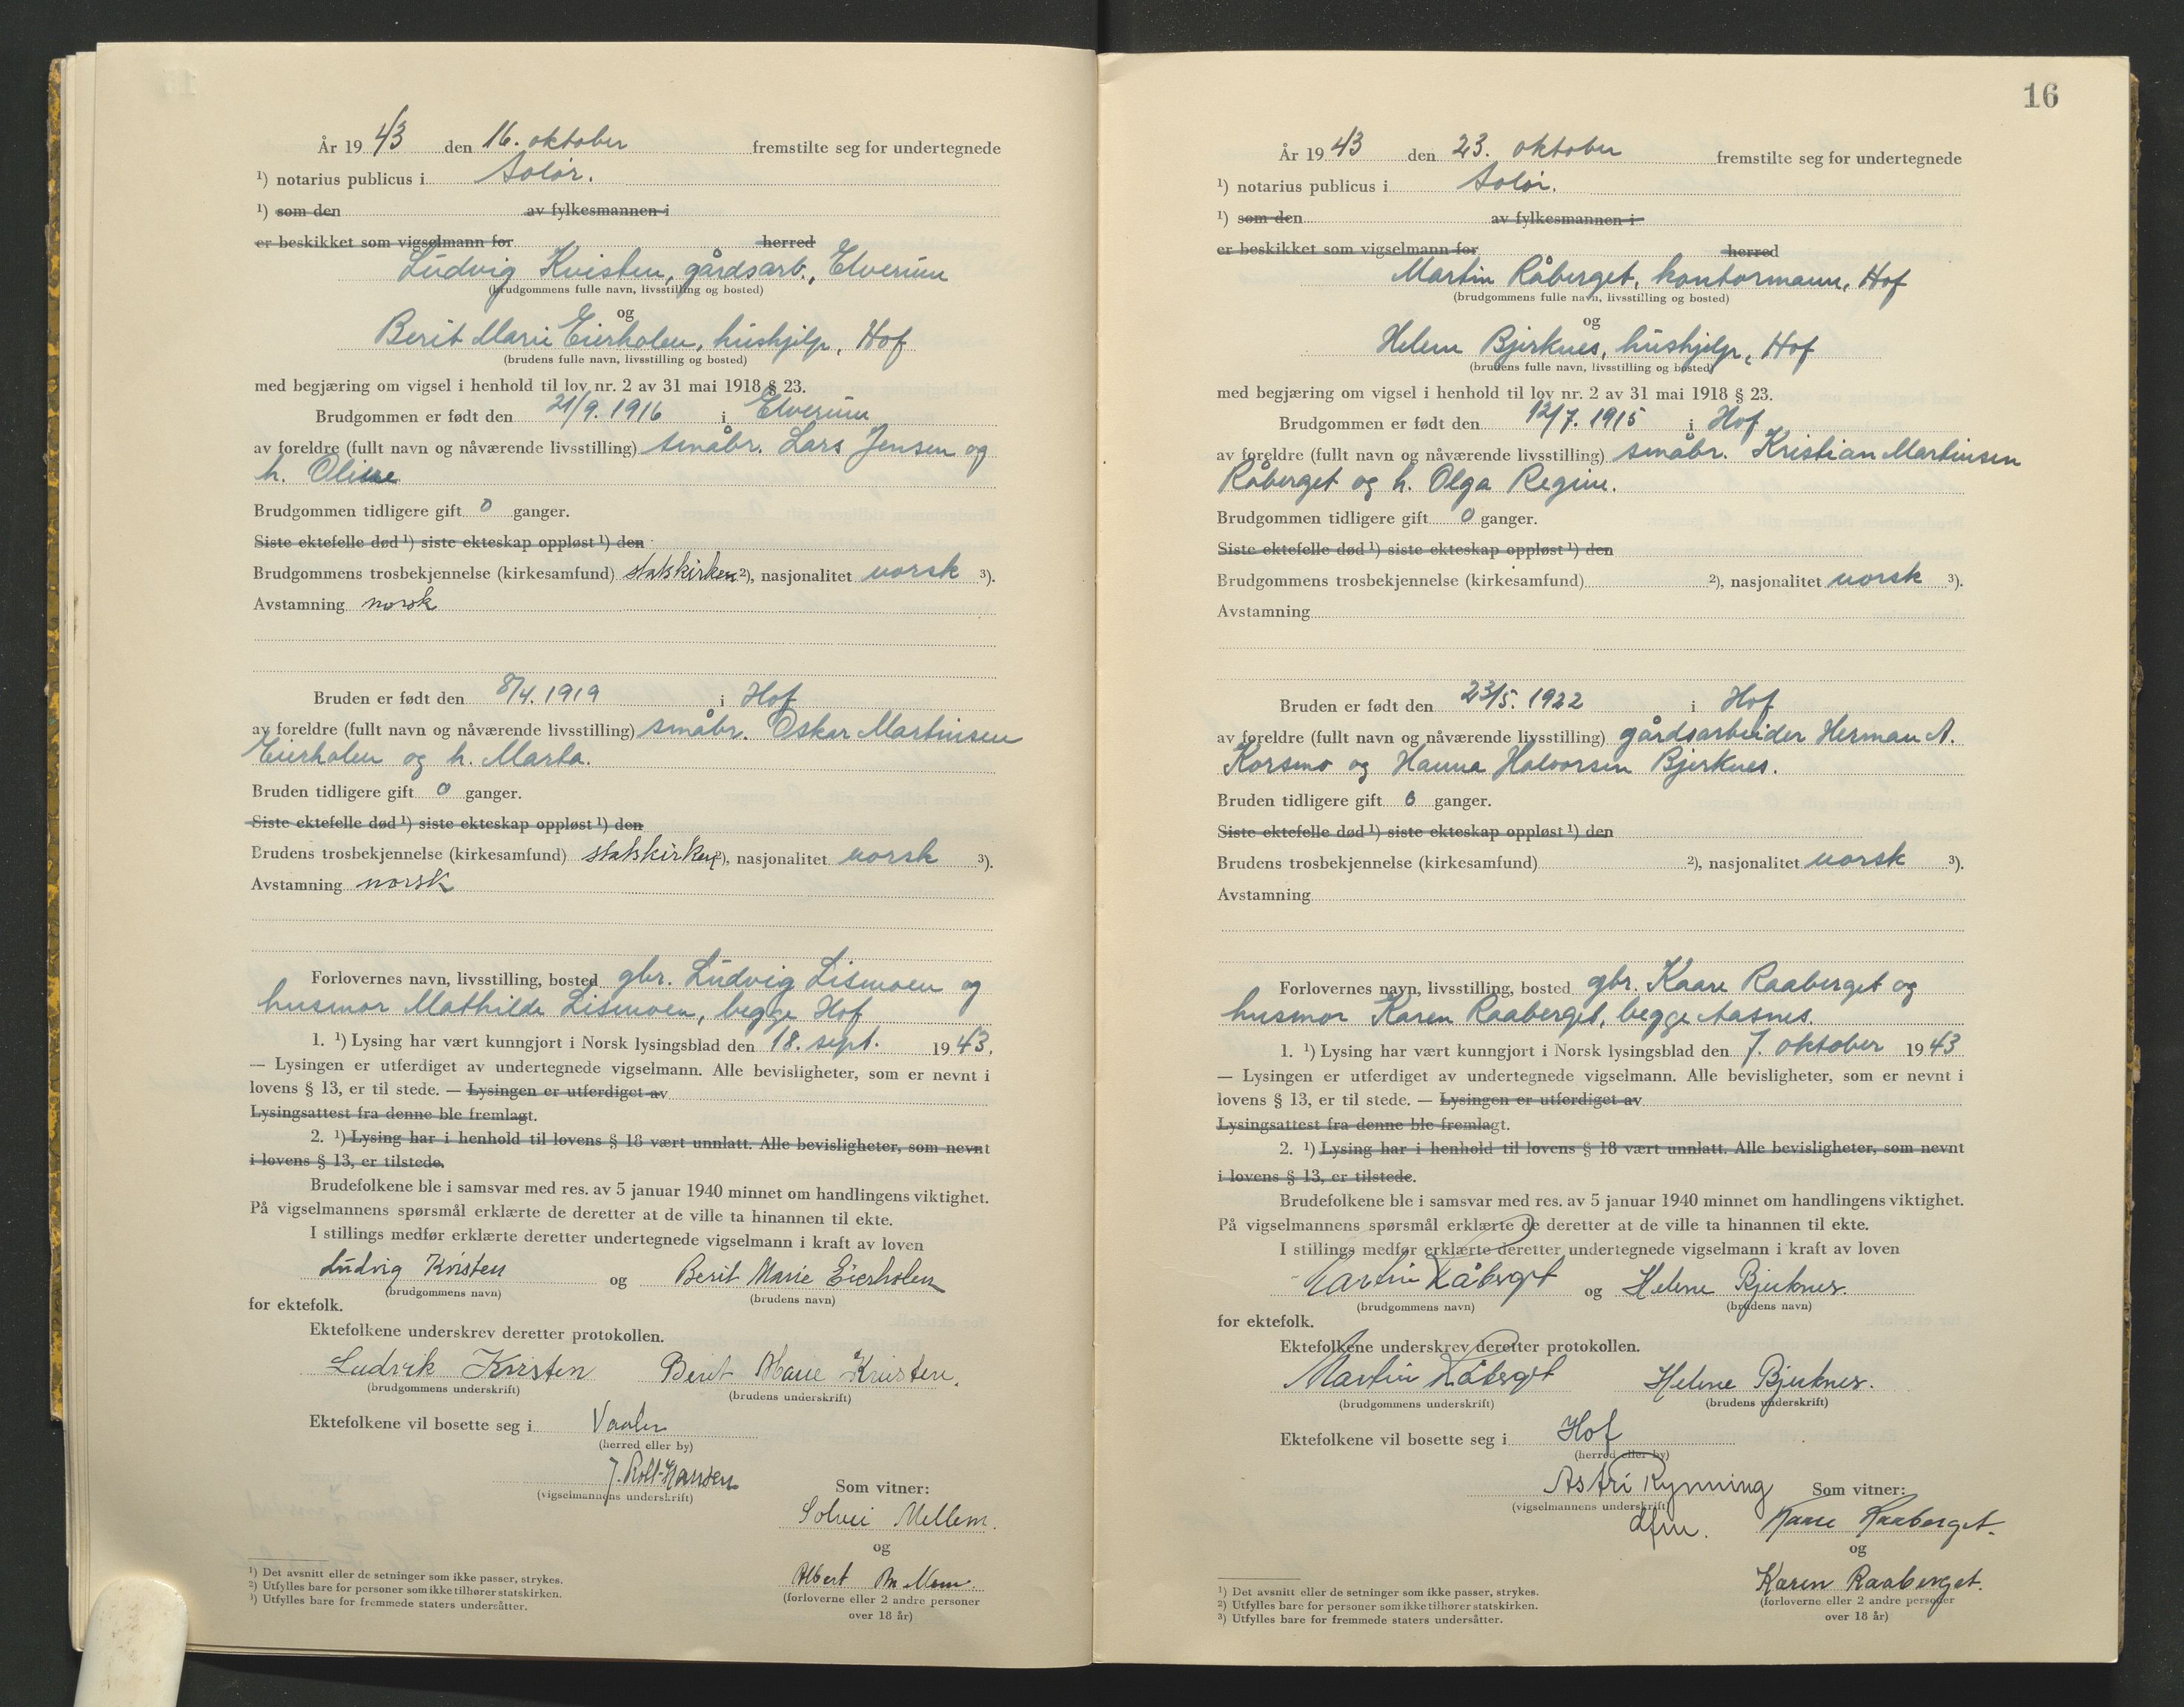 År 19 43 den 16. oktober fremstilte seg for undertegnede
¹) notarius publicus i Solør.
¹) som den av fylkesmannen i
er beskikket som vigselmann for herred
Ludvig Kvisten, gårdsarb., Elverum
(brudgommens fulle navn, livsstilling og bosted)
og
Berit Marie Eierholen, hushjelp, Hof
(brudens fulle navn, livsstilling og bosted)
med begjæring om vigsel i henhold til lov nr. 2 av 31 mai 1918 § 23.
Brudgommen er født den 21/9. 1916 i Elverum
av foreldre (fullt navn og nåværende livsstilling) småbr. Lars Jensen og
h. Oline
Brudgommen tidligere gift 0 ganger.
Siste ektefelle død ¹) siste ekteskap oppløst ¹) den
Brudgommens trosbekjennelse (kirkesamfund) statskirken ²), nasjonalitet norsk ³).
Avstamning norsk
Bruden er født den 8/4. 1919 i Hof
av foreldre (fullt navn og nåværende livsstilling) småbr. Oskar Martinsen
Eierholen og h. Marta.
Bruden tidligere gift 0 ganger.
Siste ektefelle død ¹) siste ekteskap oppløst ¹) den
Brudens trosbekjennelse (kirkesamfund) statskirken ²), nasjonalitet norsk ³).
Avstamning norsk
Forlovernes navn, livsstilling, bosted gbr. Ludvig Lismoen og
husmor Mathilde Lismoen, begge Hof
1. ¹) Lysing har vært kunngjort i Norsk lysingsblad den 18. sept. 19 43.
— Lysingen er utferdiget av undertegnede vigselmann. Alle bevisligheter, som er nevnt i
lovens § 13, er til stede. — Lysingen er utferdiget av
Lysingsattest fra denne ble fremlagt.
2. ¹) Lysing har i henhold til lovens § 18 vært unnlatt. Alle bevisligheter, som nevnt
i lovens § 13, er tilstede.
Brudefolkene ble i samsvar med res. av 5 januar 1940 minnet om handlingens viktighet.
På vigselmannens spørsmål erklærte de deretter at de ville ta hinannen til ekte.
I stillings medfør erklærte deretter undertegnede vigselmann i kraft av loven
Ludvig Kvisten og Berit Marie Eierholen
(brudgommens navn) (brudens navn)
for ektefolk.
Ektefolkene underskrev deretter protokollen.
Ludvik Kvisten Berit Marie Kvisten.
(brudgommens underskrift) (brudens underskrift)
Ektefolkene vil bosette seg i Vaaler
(herred eller by)
J. Roll-Hansen
(vigselmannens underskrift) Som vitner:
Solvei Mellem.
og
Albert Mellem.
(forloverne eller 2 andre personer
over 18 år)
¹) Det avsnitt eller de setninger som ikke passer, strykes.
²) Utfylles bare for personer som ikke tilhører statskirken.
³) Utfylles bare for fremmede staters undersåtter.
16
År 19 43 den 23. oktober fremstilte seg for undertegnede
¹) notarius publicus i Solør.
¹) som den av fylkesmannen i
er beskikket som vigselmann for herred
Martin Råberget, kontormann, Hof
(brudgommens fulle navn, livsstilling og bosted)
og
Helene Bjerknes, hushjelp, Hof
(brudens fulle navn, livsstilling og bosted)
med begjæring om vigsel i henhold til lov nr. 2 av 31 mai 1918 § 23.
Brudgommen er født den 12/7. 1915 i Hof
av foreldre (fullt navn og nåværende livsstilling) småbr. Kristian Martinsen
Råberget og h. Olga Regine.
Brudgommen tidligere gift 0 ganger.
Siste ektefelle død ¹) siste ekteskap oppløst ¹) den
Brudgommens trosbekjennelse (kirkesamfund) ²), nasjonalitet norsk ³).
Avstamning
Bruden er født den 23/5. 1922 i Hof
av foreldre (fullt navn og nåværende livsstilling) gårdsarbeider Herman A.
Korsmo og Hanna Halvorsen Bjerknes.
Bruden tidligere gift 0 ganger.
Siste ektefelle død ¹) siste ekteskap oppløst ¹) den
Brudens trosbekjennelse (kirkesamfund) ²), nasjonalitet norsk ³).
Avstamning
Forlovernes navn, livsstilling, bosted gbr. Kaare Raaberget og
husmor Karen Raaberget, begge Aasnes.
1. ¹) Lysing har vært kunngjort i Norsk lysingsblad den 7. oktober 19 43
— Lysingen er utferdiget av undertegnede vigselmann. Alle bevisligheter, som er nevnt i
lovens § 13, er til stede. — Lysingen er utferdiget av
Lysingsattest fra denne ble fremlagt.
2. ¹) Lysing har i henhold til lovens § 18 vært unnlatt. Alle bevisligheter, som nevnt
i lovens § 13, er tilstede.
Brudefolkene ble i samsvar med res. av 5 januar 1940 minnet om handlingens viktighet.
På vigselmannens spørsmål erklærte de deretter at de ville ta hinannen til ekte.
I stillings medfør erklærte deretter undertegnede vigselmann i kraft av loven
Martin Råberget og Helene Bjerknes.
(brudgommens navn) (brudens navn)
for ektefolk.
Ektefolkene underskrev deretter protokollen.
Martin Råberget Helene Bjerknes.
(brudgommens underskrift) (brudens underskrift)
Ektefolkene vil bosette seg i Hof
(herred eller by)
Astri Rynning
(vigselmannens underskrift) Som vitner:
dfm. Kaare Raaberget.
og
Karen Raaberget.
(forloverne eller 2 andre personer
over 18 år)
¹) Det avsnitt eller de setninger som ikke passer, strykes.
²) Utfylles bare for personer som ikke tilhører statskirken.
³) Utfylles bare for fremmede staters undersåtter.